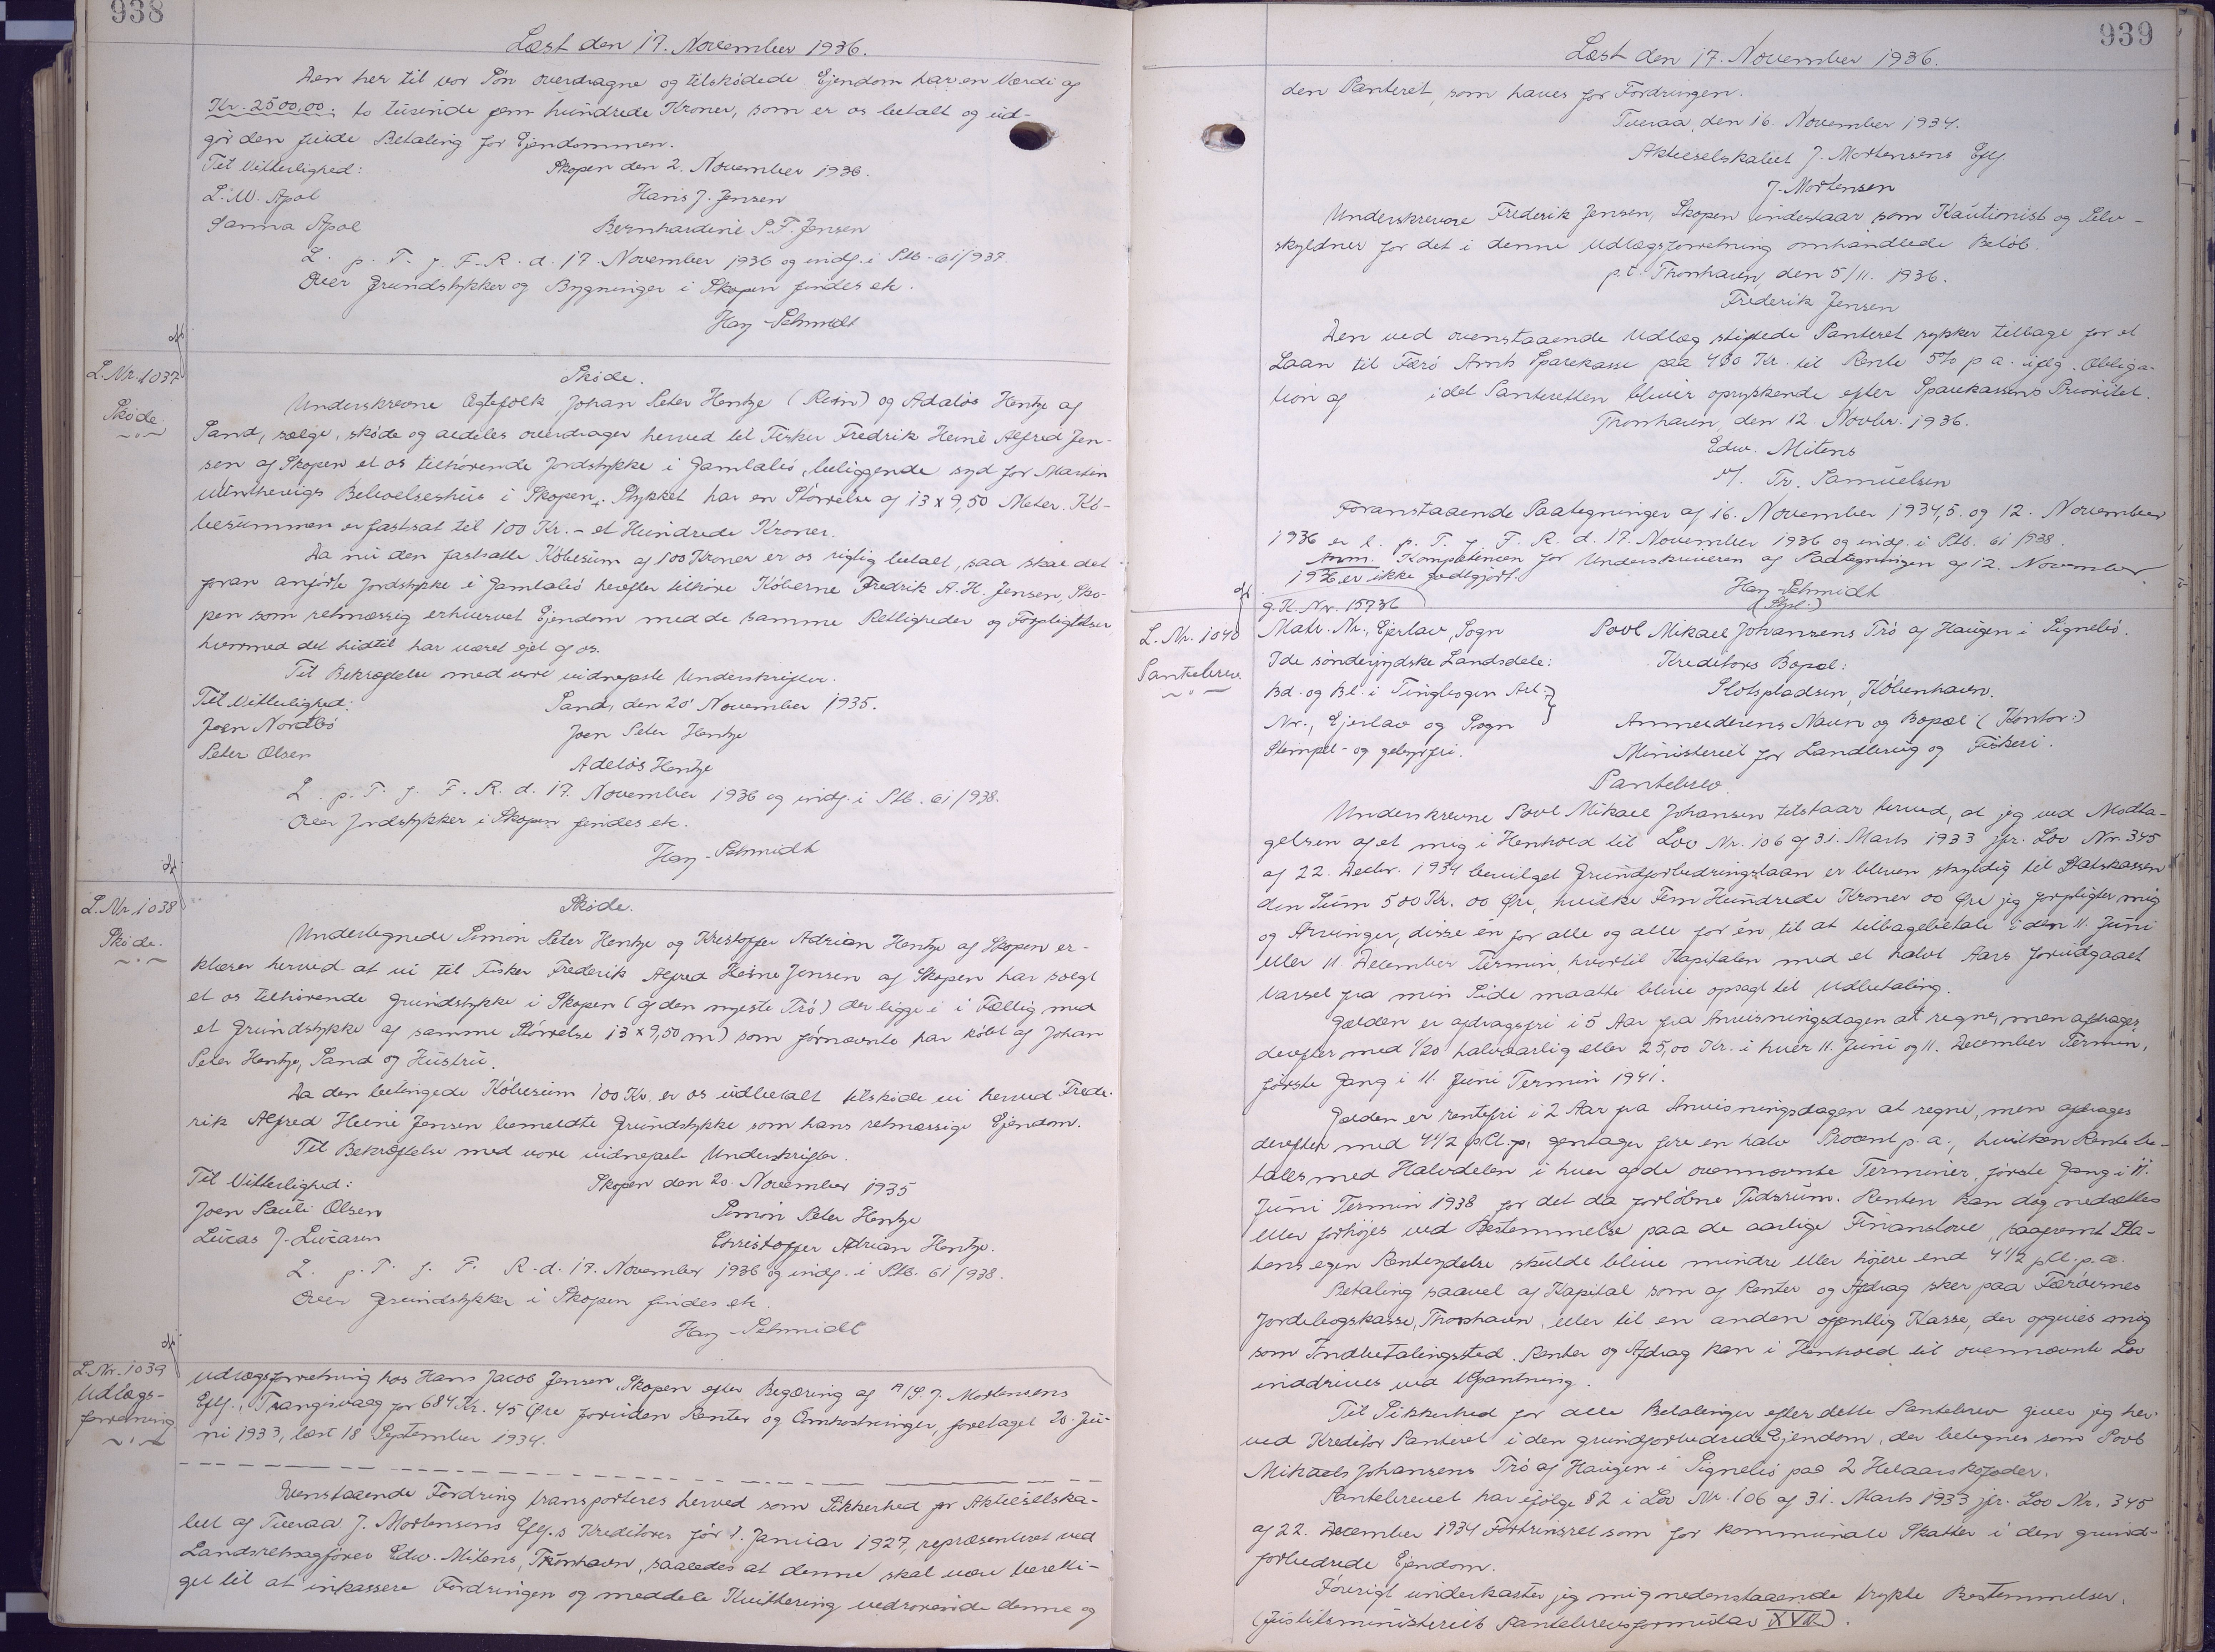 938
Læst den 17. November 1936.
Den her til vor Søn overdragne og tilskødede Ejendom har en Værdi af
Kr. 2500,00. to tusinde fem hundrede Kroner, som er os betalt og ud-
gør den fulde Betaling for Ejendommen.
Til Vitterlighed: Skopen den 2. November 1936.
L. W. Apol Hans J. Jensen
Sanna Apol Bernhardine P. F. Jensen
L. p. T. f. F. R. d. 17. November 1936 og indf. i Ptb. 61/937.
Over Grundstykker og Bygninger i Skopen findes ek.
Hay-Schmidt
L. Nr. 1037
Skøde.
Skøde.
Underskrevne Ægtefolk Johan Peter Hentze (Rein) og Adaløs Hentze af
Sand, sælge, skøde og aldeles overdrager herved til Fisker Fredrik Heine Alfred Jen-
sen af Skopen et os tilhørende Jordstykke i Gamlalió, beliggende syd for Martin
Winthereigs Beboelseshus i Skopen. Stykket har en Størrelse af 13 x 9,50 Meter. Kö-
besummen er fastsat til 100 Kr. - et Hundrede Kroner.
Da nu den fastsatte Købesum af 100 Kroner er os rigtig betalt, saa skal det
foran anførte Jordstykke i Gamlalió herefter tilhøre Køberne Fredrik A. H. Jensen, Sko-
pen som retmæssig erhvervet Ejendom med de samme Rettigheder og Forpligtelser,
hvormed det hidtil har været ejet af os.
Til Bekræftelse med vore vidnefaste Underskrifter.
Til Vitterlighed: Sand, den 20' November 1935.
Joen Nordbó Joen Peter Hentze
Peter Olsen Adelós Hentze
L. p. T. f. F. R. d. 17. November 1936 og indf. i Ptb. 61/938.
Over Jordstykker i Skopen findes ek.
Hay-Schmidt
L. Nr. 1038
Skøde.
Skøde.
Undertegnede Simon Peter Hentze og Kristoffer Adrian Hentze af Skopen er-
klærer herved at vi til Fisker Frederik Alfred Heine Jensen af Skopen har solgt
et os tilhørende Grundstykke i Skopen (af den nyeste Tró) der ligge i i Fællig med
et Grundstykke af samme Størrelse 13 x 9,50 m) som førnævnte har købt af Johan
Peter Hentze, Sand og Hustru.
Da den betingede Købesum 100 Kr. er os udbetalt tilskøde vi herved Frede-
rik Alfred Heine Jensen bemeldte Grundstykke som hans retmæssige Ejendom.
Til Bekræftelse med vore vidnefaste Underskrifter.
Til Vitterlighed: Skopen den 20. November 1935
Joen Pauli Olsen Simon Peter Hentze
Lucas J. Lucasen Christoffer Adrian Hentze.
L. p. T. f. F. R. d. 17. November 1936 og indf. i Ptb. 61/938.
Over Grundstykker i Skopen findes ek.
Hay-Schmidt
L. Nr. 1039
Udlægs-
forretning
Udlægsforretning hos Hans Jacob Jensen, Skopen efter Begæring af A/S. J. Mortensens
Eftf., Trangisvaag for 684 Kr. 45 Øre foruden Renter og Omkostninger, foretaget 20. Ju-
ni 1933, læst 18 September 1934.
Ovenstaaende Fordring transporteres herved som Sikkerhed for Aktieselska-
bet af Tveraa J. Mortensens Eftf.s Kreditorer før 1. Januar 1927, repræsenteret ved
Landsretssagfører Edw. Mitens, Thorshavn, saaledes at denne skal være beretti-
get til at inkassere Fordringen og meddele Kvittering vedrørende denne og
939
Læst den 17. November 1936.
den Panteret, som haves for Fordringen.
Tveraa, den 16. November 1934.
Aktieselskabet J. Mortensens Eftf.
J. Mortensen
Underskrevne Frederik Jensen, Skopen indestaar som Kautionist og Selv-
skyldner for det i denne Udlægsforretning omhandlede Beløb.
p.t. Thorshavn, den 5/11. 1936.
Frederik Jensen
Den ved ovenstaaende Udlæg stiftede Panteret rykker tilbage for et
Laan til Færø Amts Sparekasse paa 400 Kr. til Rente 5% p a. iflg. Obliga-
tion af idet Panteretten bliver oprykkende efter Sparekassens Prioritet.
Thorshavn, den 12. Novbr. 1936.
Edw. Mitens
v/. Tr. Samuelsen
Foranstaaende Paategninger af 16. November 1934, 5. og 12. November
1936 er l. p. T. f. F. R. d. 17. November 1936 og indf. i Ptb. 61/938.
Anm. Kompetencen for Underskriveren af Paategningen af 12. November
1936 er ikke godtgjort.
Hay-Schmidt
(Stpl.)
L. Nr. 1040
Pantebrev.
g. K. Nr. 15736
Matr. Nr., Ejerlav, Sogn Povl Mikael Johansens Tró af Haugen i Signebó.
I de sønderjydske Landsdele: Kreditors Bopæl:
Bd. og Bl. i Tingbogen Art.} Slotspladsen, København.
Nr., Ejerlav og Sogn Anmelderens Navn og Bopæl (Kontor:)
Stempel- og gebyrfri. Ministeriet for Landbrug og Fiskeri.
Pantebrev.
Underskrevne Povl Mikael Johansen tilstaar herved, at jeg ved Modta-
gelsen af et mig i Henhold til Lov Nr. 106 af 31. Marts 1933 jfr. Lov Nr. 345
af 22. Decbr. 1934 bevilget Grundforbedringslaan er bleven skyldig til Statskassen
den Sum 500 Kr. 00 Øre, hvilke Fem Hundrede Kroner 00 Øre jeg forpligter mig
og Arvinger, disse én for alle og alle for én, til at tilbagebetale i den 11. Juni
eller 11. December Termin, hvortil Kapitalen med et halvt Aars forudgaaet
Varsel fra min Side maatte blive opsagt til Udbetaling.
Gælden er afdragsfri i 5 Aar fra Anvisningsdagen at regne, men afdrages
derefter med 1/20 halvaarlig eller 25,00 Kr. i hver 11. Juni og 11. December Termin,
første Gang i 11. Juni Termin 1941.
Gælden er rentefri i 2 Aar fra Anvisningsdagen at regne, men afdrages
derefter med 4 1/2 pCt. p. gentager fire en halv Procent p. a., hvilken Rente be-
tales med Halvdelen i hver af de ovennævnte Terminer, første Gang i 11.
Juni Termin 1938 for det da forløbne Tidsrum. Renten kan dog nedsættes
eller forhøjes ved Bestemmelse paa de aarlige Finanslove, saafremt Sta-
tens egen Renteydelse skulde blive mindre eller højere end 4 1/2 pCt. p.a.
Betaling saavel af Kapital som af Renter og Afdrag sker paa Færøernes
Jordebogskasse, Thorshavn, eller til en anden offentlig Kasse, der opgives mig
som Indbetalingssted. Renter og Afdrag kan i Henhold til ovennævnte Lov
inddrives ved Udpantning.
Til Sikkerhed for alle Betalinger efter dette Pantebrev giver jeg her-
ved Kreditor Panteret i den grundforbedrede Ejendom, der betegnes som Povl
Mikaels Johansens Tró af Haugen i Signebó paa 2 Helaarskofoder.
Pantebrevet har ifølge § 2 i Lov Nr. 106 af 31. Marts 1933 jfr. Lov Nr. 345
af 22. December 1934 Fortrinsret som for kommunale Skatter i den grund-
forbedrede Ejendom.
Iøvrigt underkaster jeg mig nedenstaaende trykte Bestemmelser.
(Justitsministeriets Pantebrevsformular XVII).